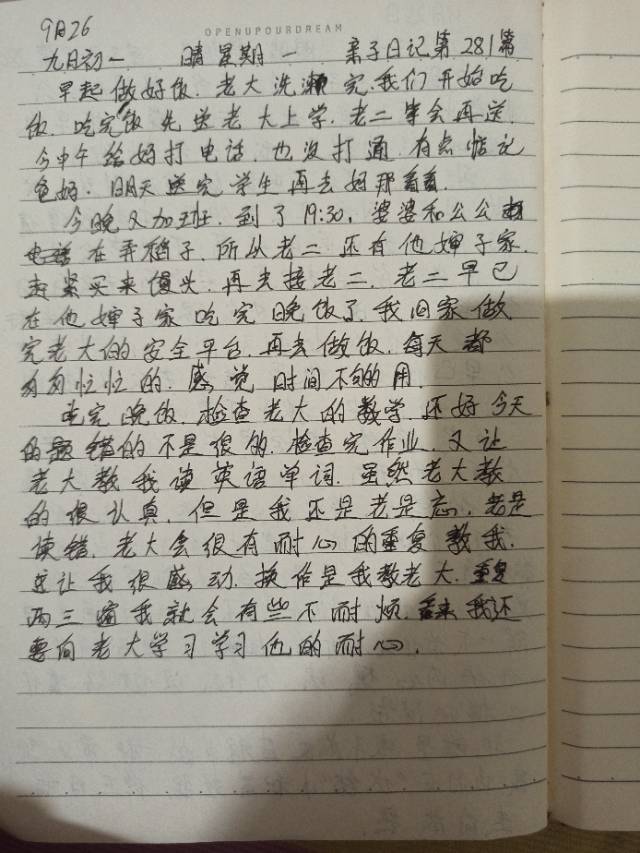 OPENUPOURDREAM
9月26
九月初一 晴 星期一 亲子日记第281篇
早起做好饭.老大洗漱完.我们开始吃
饭.吃完饭先送老大上学.老二等会再送.
今中午给妈打电话.也没打通.有点惦记
咱妈.明天送完学生再去妈那看看.
今晚又加班.到了19:30,婆婆和公公
在弄稻子.所以老二还有他婶子家.
赶紧买来馒头.再去接老二.老二早已
在他婶子家吃完晚饭了.我回家做
完老大的安全平台.再去做饭.每天都
匆匆忙忙的.感觉时间不够的用.
吃完晚饭.检查老大的数学.还好今天
的题错的不是很多.检查完作业.又让
老大教我读英语单词.虽然老大教
的很认真.但是我还是老是忘.老是
读错.老大会很有耐心的重复教我.
这让我很感动.换作是我教老大.重复
两三遍我就会有些不耐烦.看来我还
要向老大学习学习他的耐心.